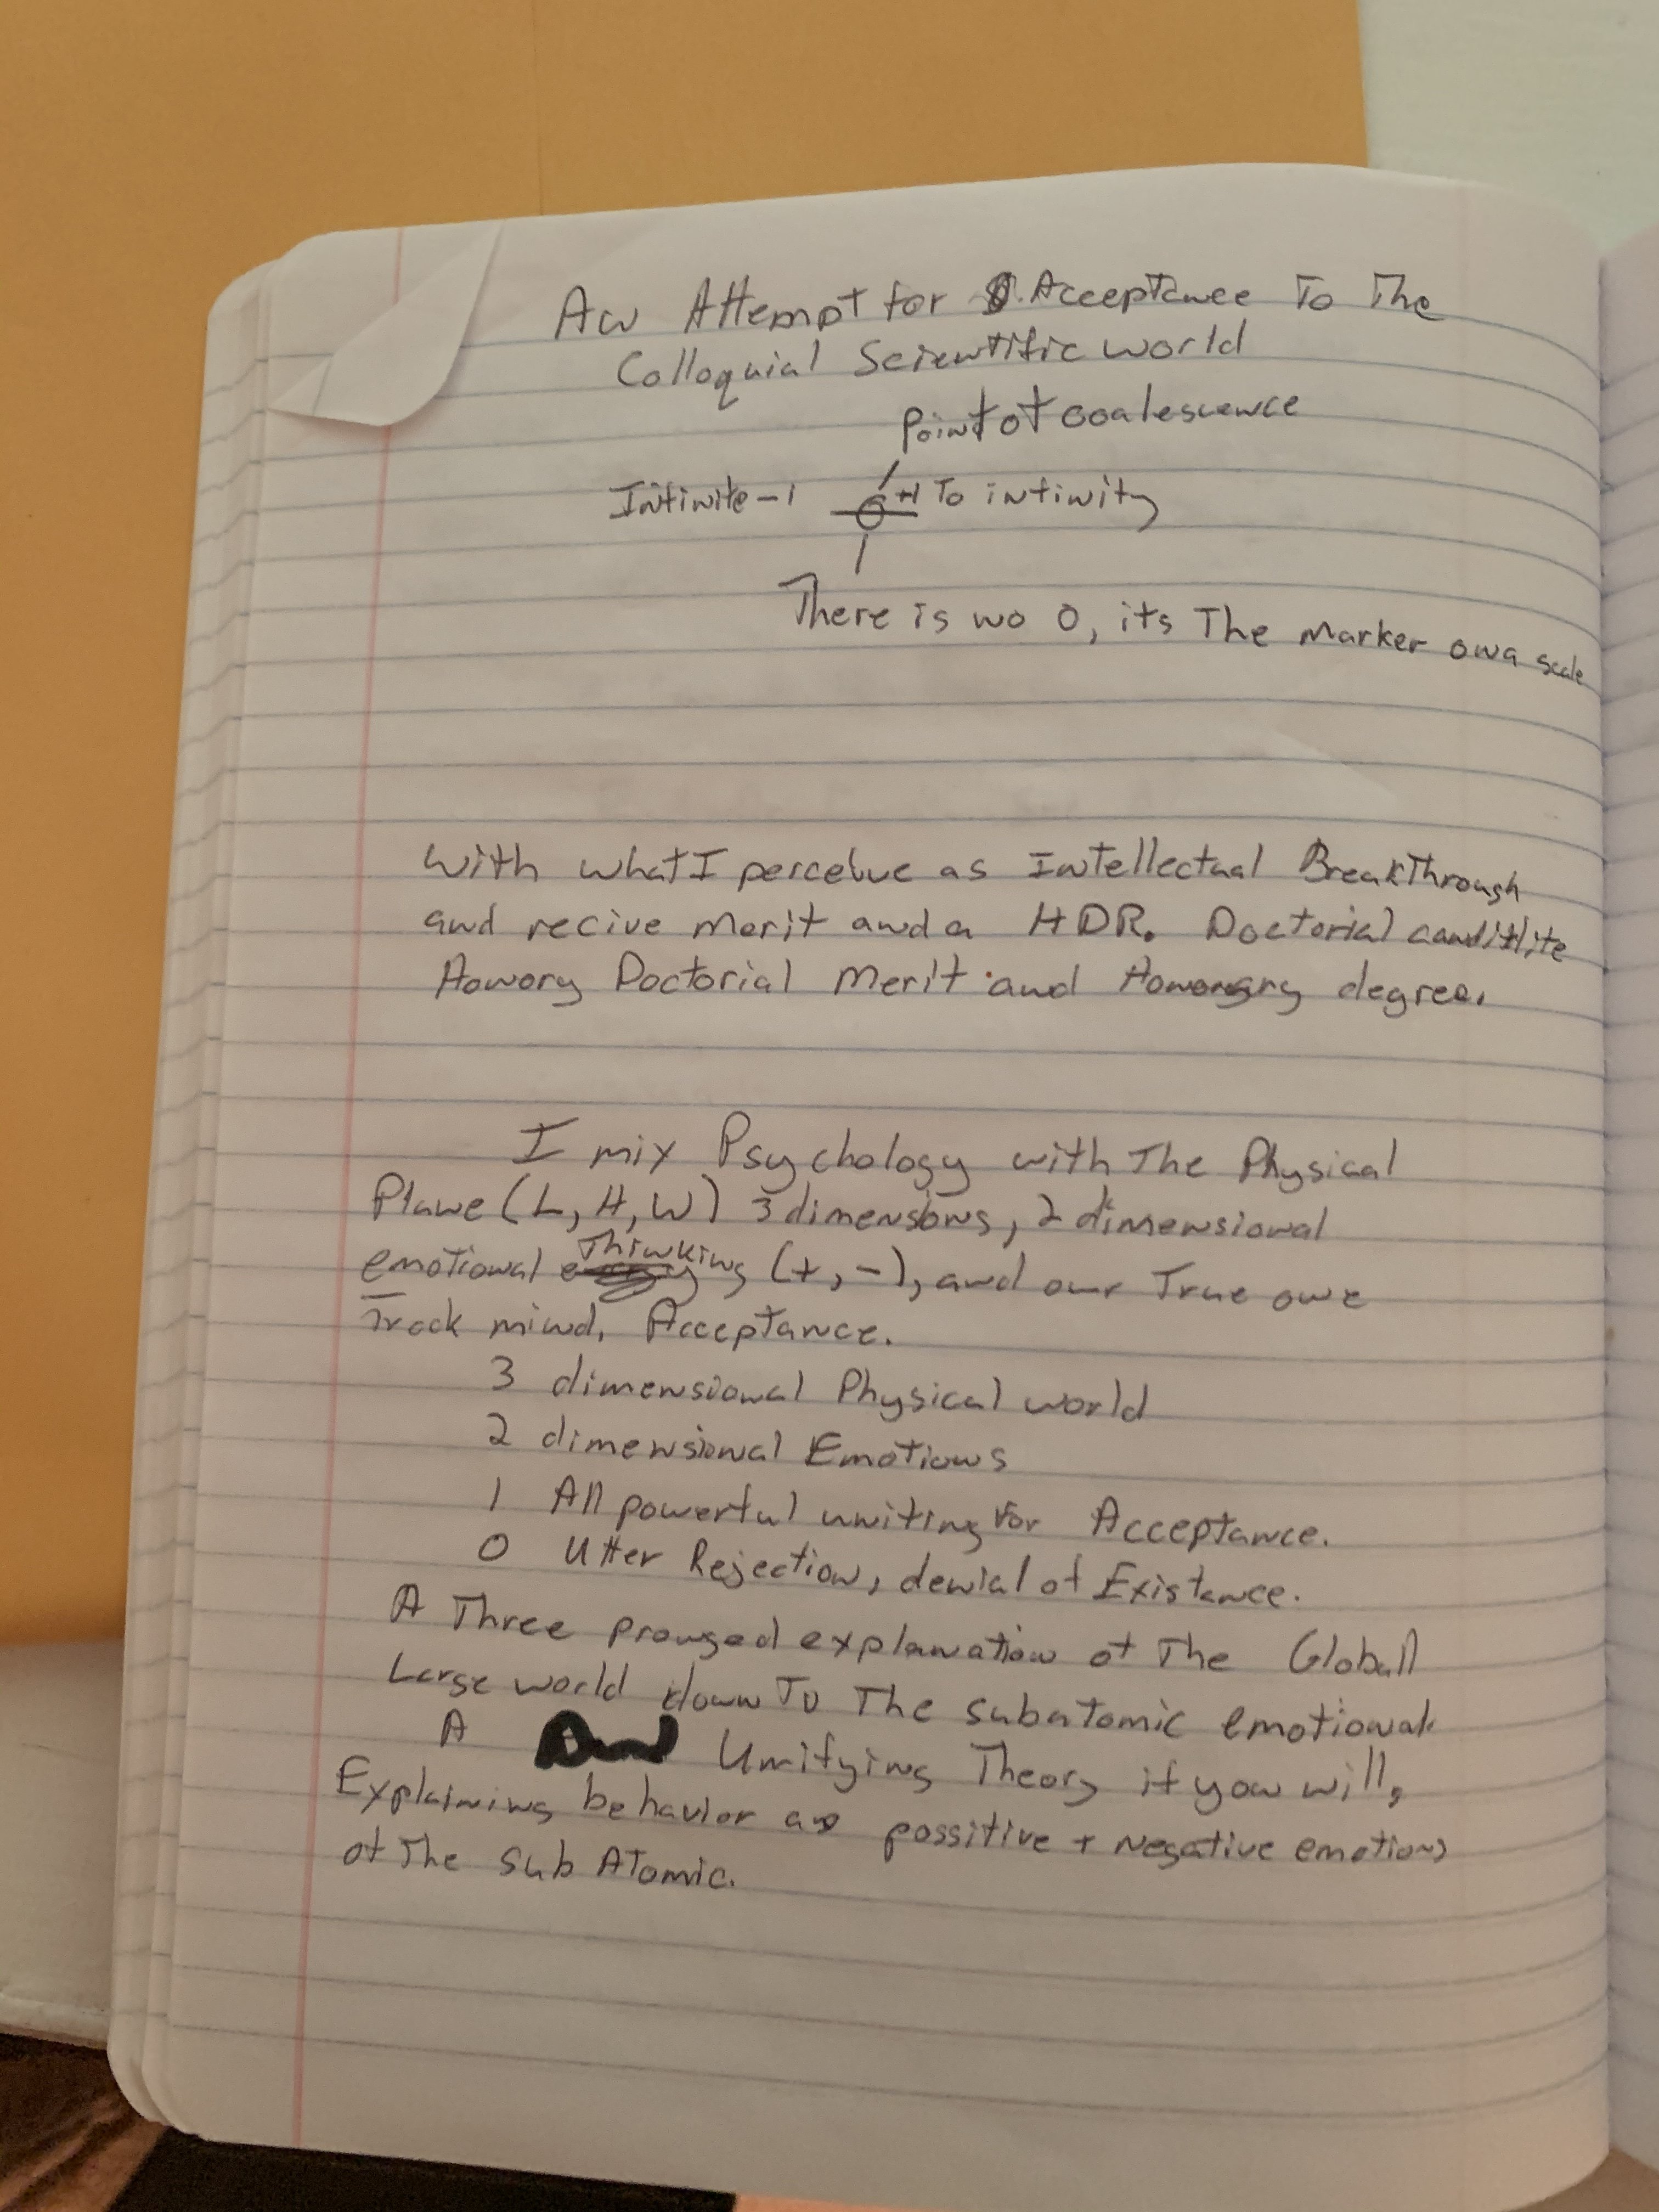 An Attempt for Acceptance To The
Colloquial Scientific world
Point of coalescence
Infinite -1 +1 To infinity
There is no 0, its The marker on a scale
With what I perceive as Intellectual BreakThrough
and recive merit and a HDR. Doctorial
Honory Doctorial Merit and degree.
I mix Psychology with The Physical
Plane (L, H, W) 3 dimensions, 2 dimensional
emotional Thinking (+, -), and our True one
Track mind, Acceptance.
3 dimensional Physical world
2 dimensional Emotions
1 All powerful uniting for Acceptance.
0 Utter Rejection, denial of Existance.
A Three pronged explanation of The Globall
Large world down To The subatomic emotional.
A Unifying Theory if you will,
Explaining behavior as possitive + Negative emotions
of The Sub Atomic.